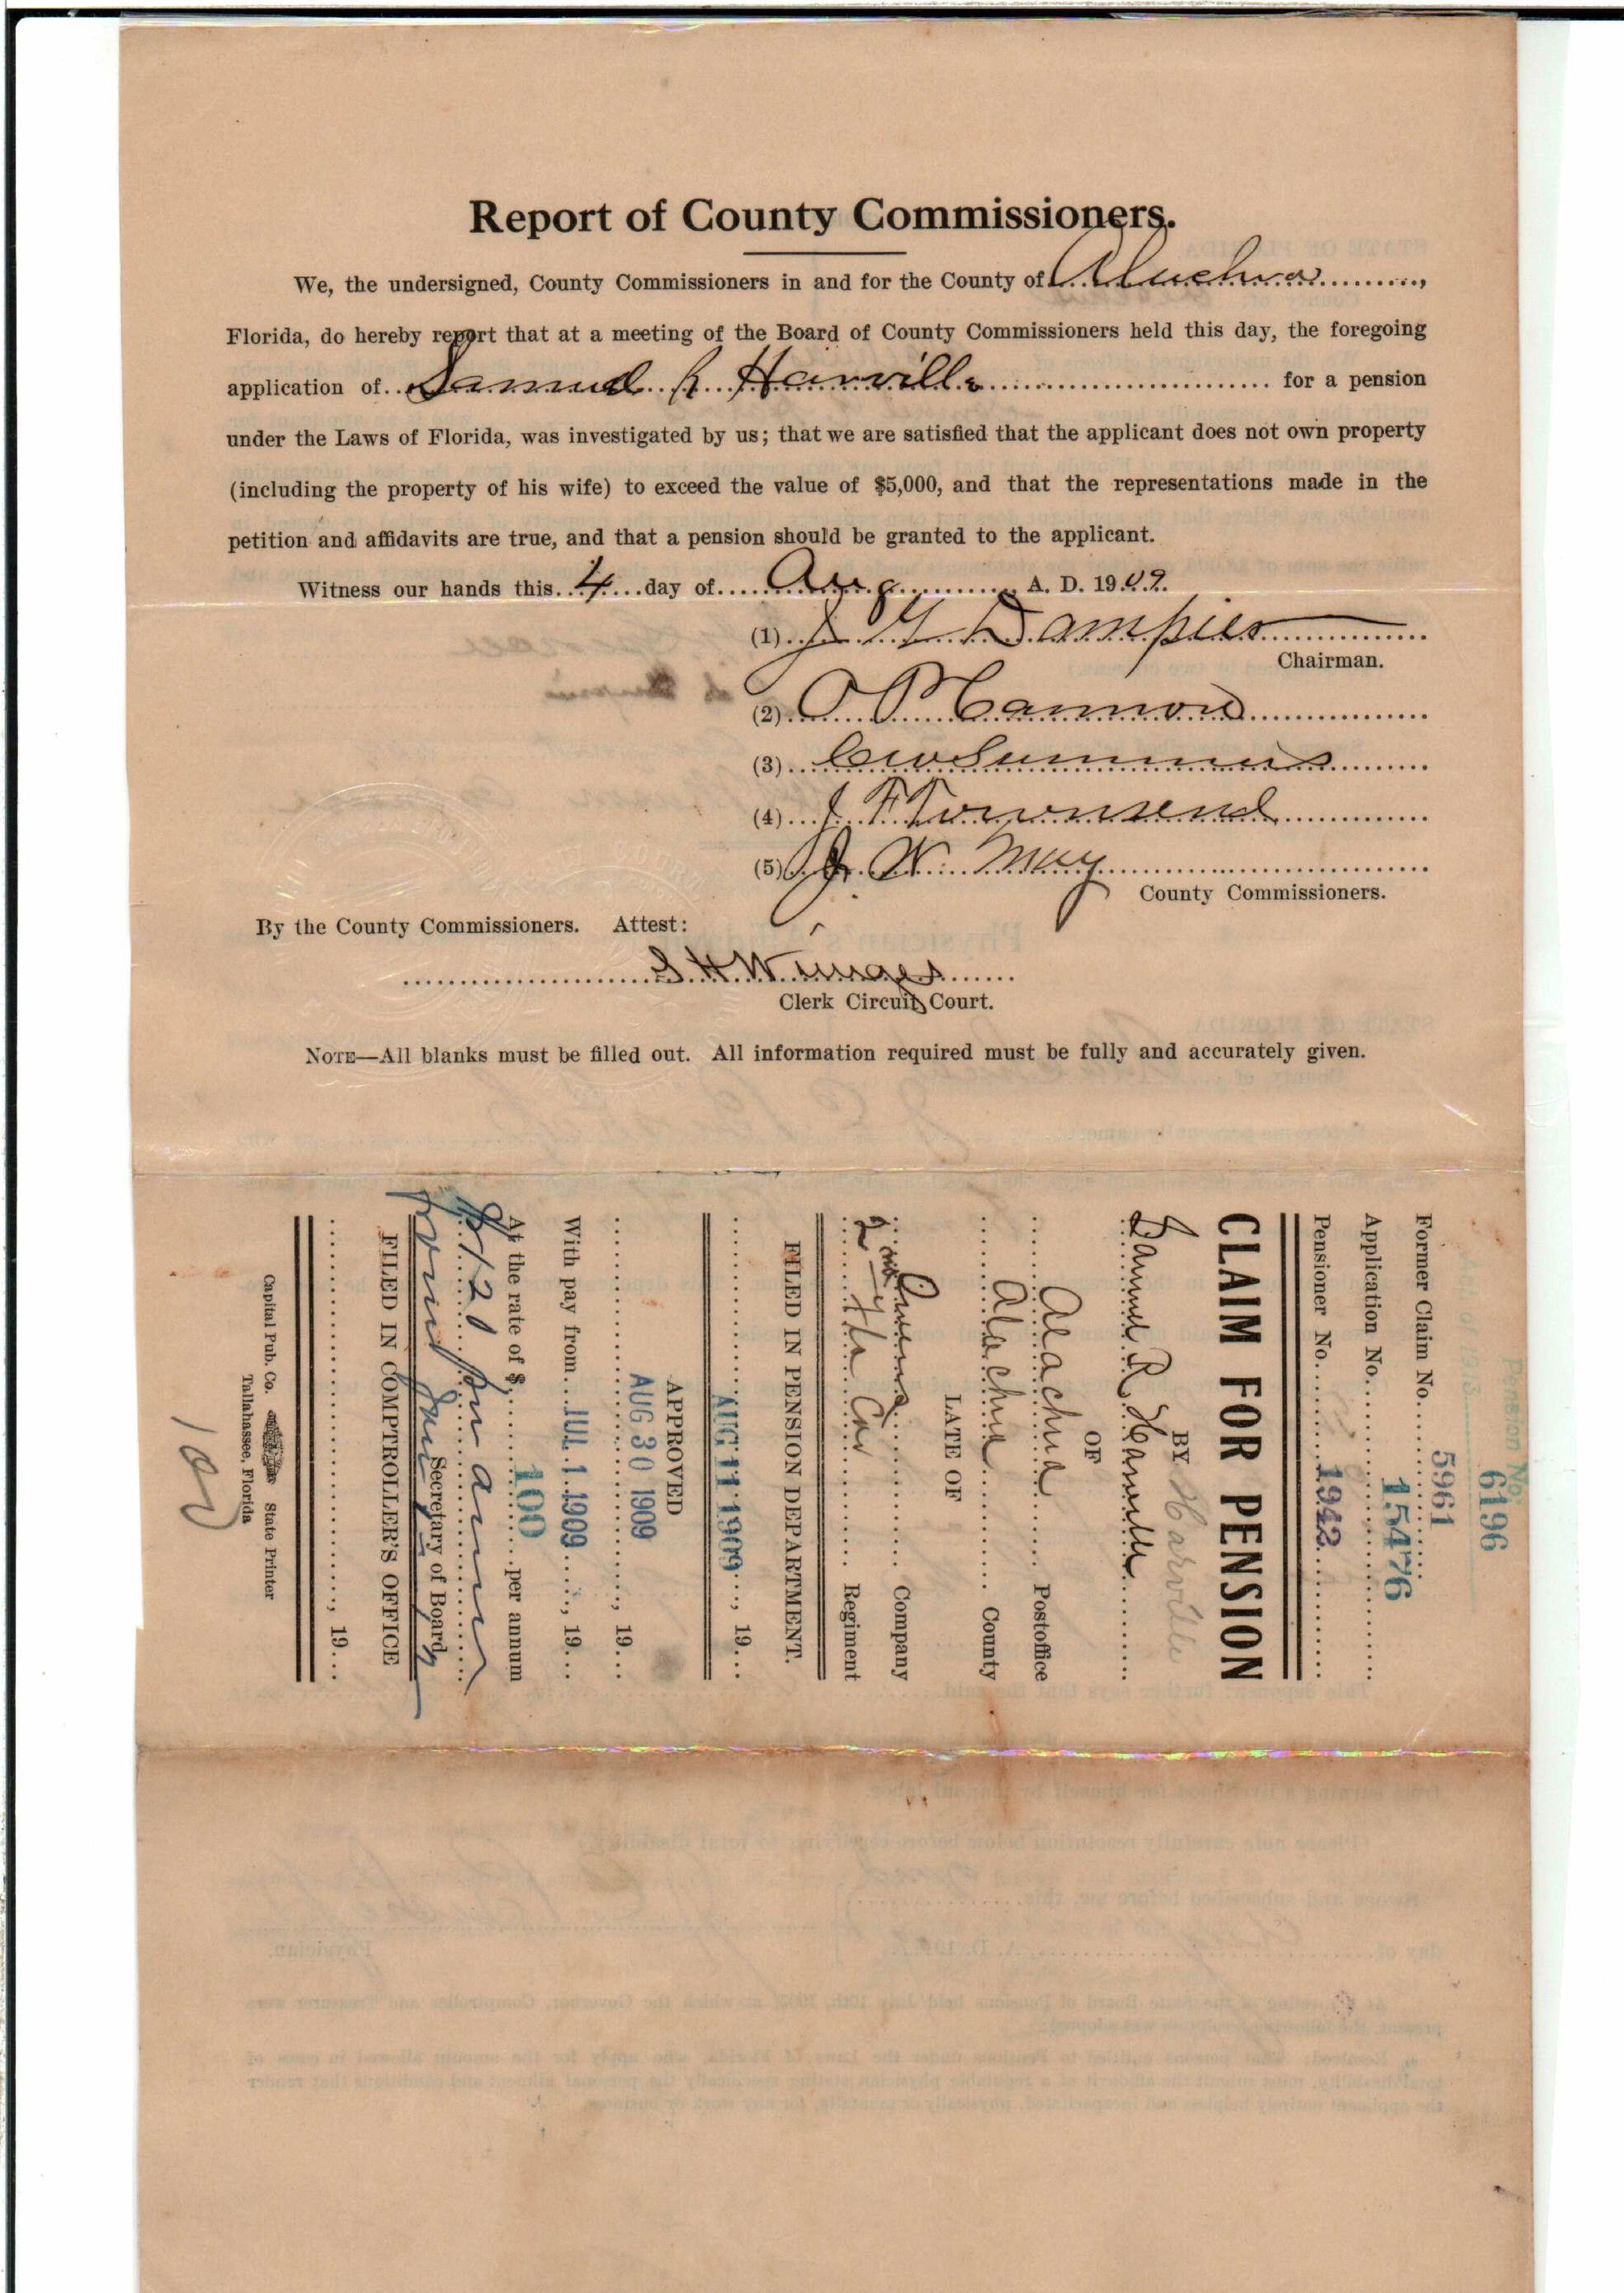 Report of County Commissioners.
We, the undersigned, County Commissioners in and for the County of Aluchua,
Florida, do hereby report that at a meeting of the Board of County Commissioners held this day, the foregoing
application of Samuel R Harville for a pension
under the Laws of Florida, was investigated by us; that we are satisfied that the applicant does not own property
(including the property of his wife) to exceed the value of $5,000, and that the representations made in the
petition and affidavits are true, and that a pension should be granted to the applicant.
Witness our hands this 4 day of Aug A. D. 1909.
(1) J G Dampier
Chairman.
(2) O P Cannon
(3) C W Summers
(4) J. F. Townsend
(5) J. W. May
County Commissioners.
By the County Commissioners. Attest:
S. H. Wienges
Clerk Circuit Court.
NOTE—All blanks must be filled out. All information required must be fully and accurately given.
Pension No.
6196
Former Claim No. 5961
Application No. 15476
Pensioner No. 1942
CLAIM FOR PENSION
BY Harville
Samuel R. Harville
OF
Alachua Postoffice
Alachua County
LATE OF
Owens Company
2nd Fla Cav Regiment
FILED IN PENSION DEPARTMENT.
AUG 11 1909, 19
APPROVED
AUG 30 1909, 19
With pay from JUL 1 1909, 19
At the rate of $ 100 per annum
$120 per annum
Secretary of Board
FILED IN COMPTROLLER'S OFFICE
, 19
Capital Pub. Co. State Printer
Tallahassee, Florida